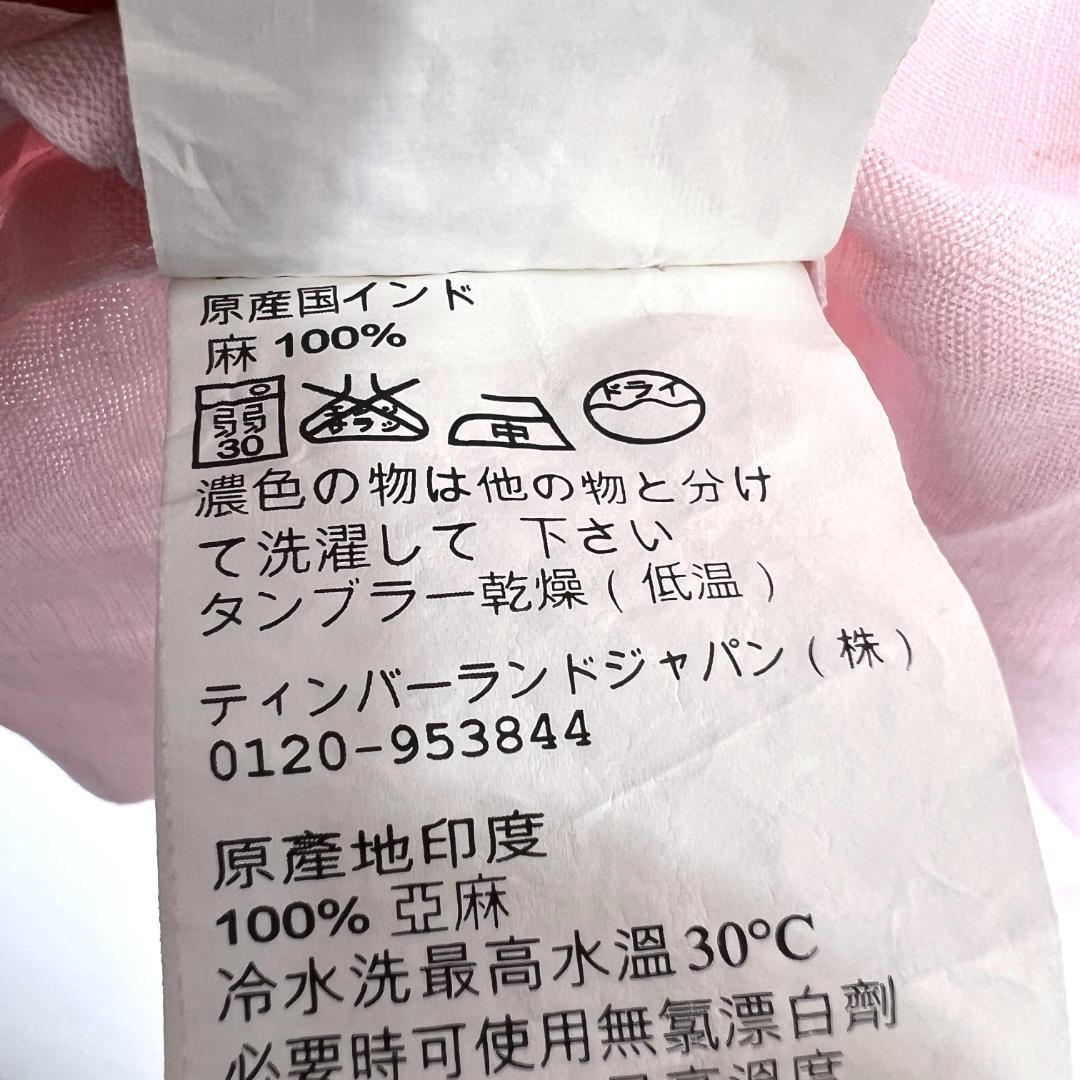 原産国インド
麻 100%
弱
30
ドライ
中
濃色の物は他の物と分け
て洗濯して 下さい
タンブラー乾燥(低温)
ティンバーランドジャパン(株)
0120-953844
原產地印度
100% 亞麻
冷水洗最高水溫30°C
必要時可使用無氯漂白劑